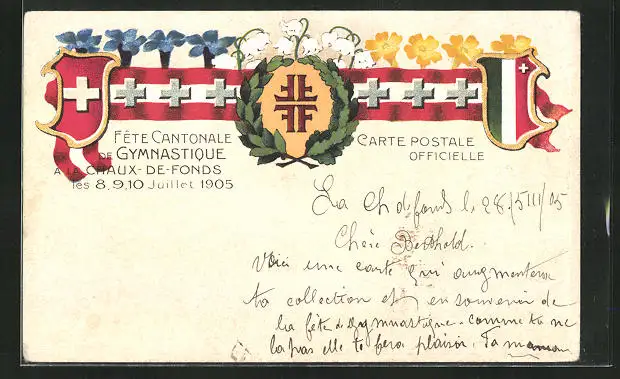 FÊTE CANTONALE
DE GYMNASTIQUE
A LA CHAUX-DE-FONDS
les 8, 9, 10 Juillet 1905
CARTE POSTALE
OFFICIELLE
La Ch d fonds l 28/VIII/05
Chère Berthold.
Voici une carte qui augmentera
ta collection et en souvenir de
la fête d gymnastique. comme tu ne
la pas elle te fera plaisir. Ta maman